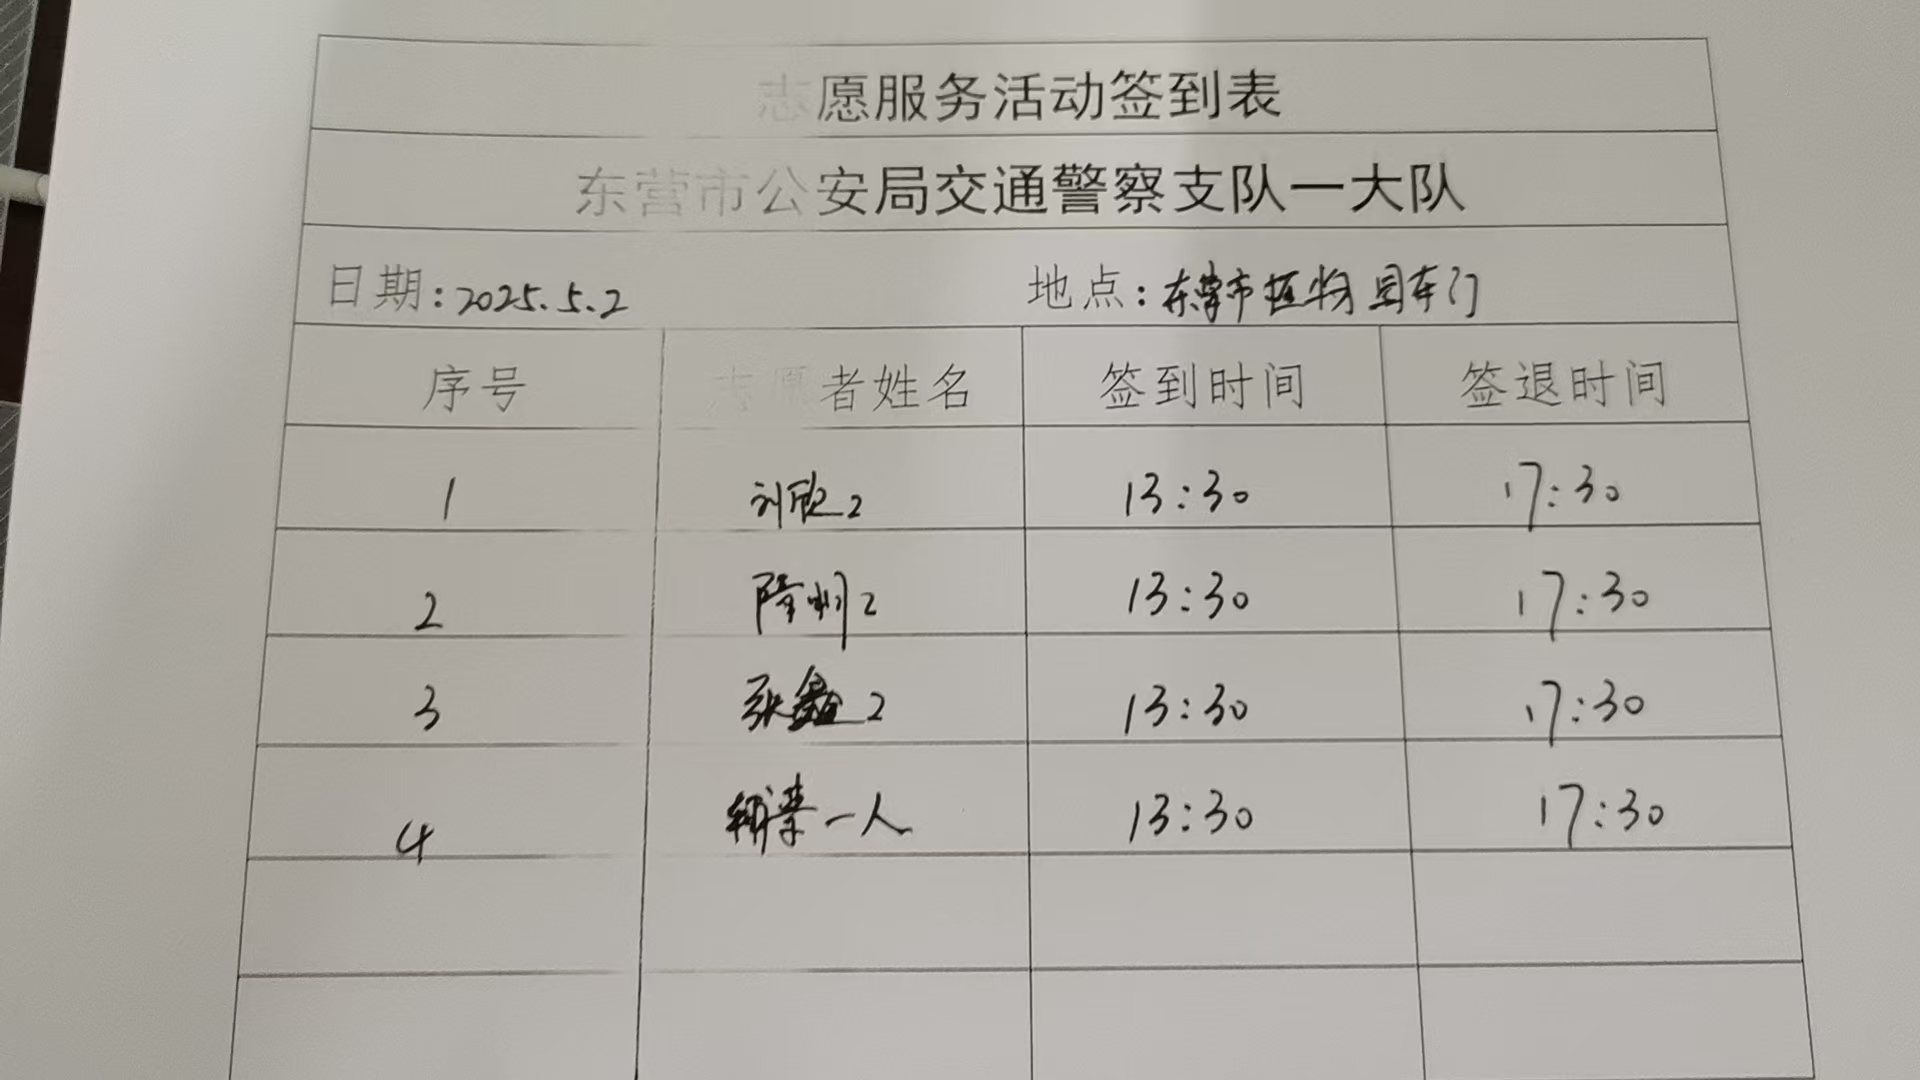 志愿服务活动签到表
东营市公安局交通警察支队一大队
日期:2025.5.2 地点:东营市植物园东门
序号 志愿者姓名 签到时间 签退时间
1 刘欣2 13:30 17:30
2 隋州2 13:30 17:30
3 张鑫2 13:30 17:30
4 一人 13:30 17:30